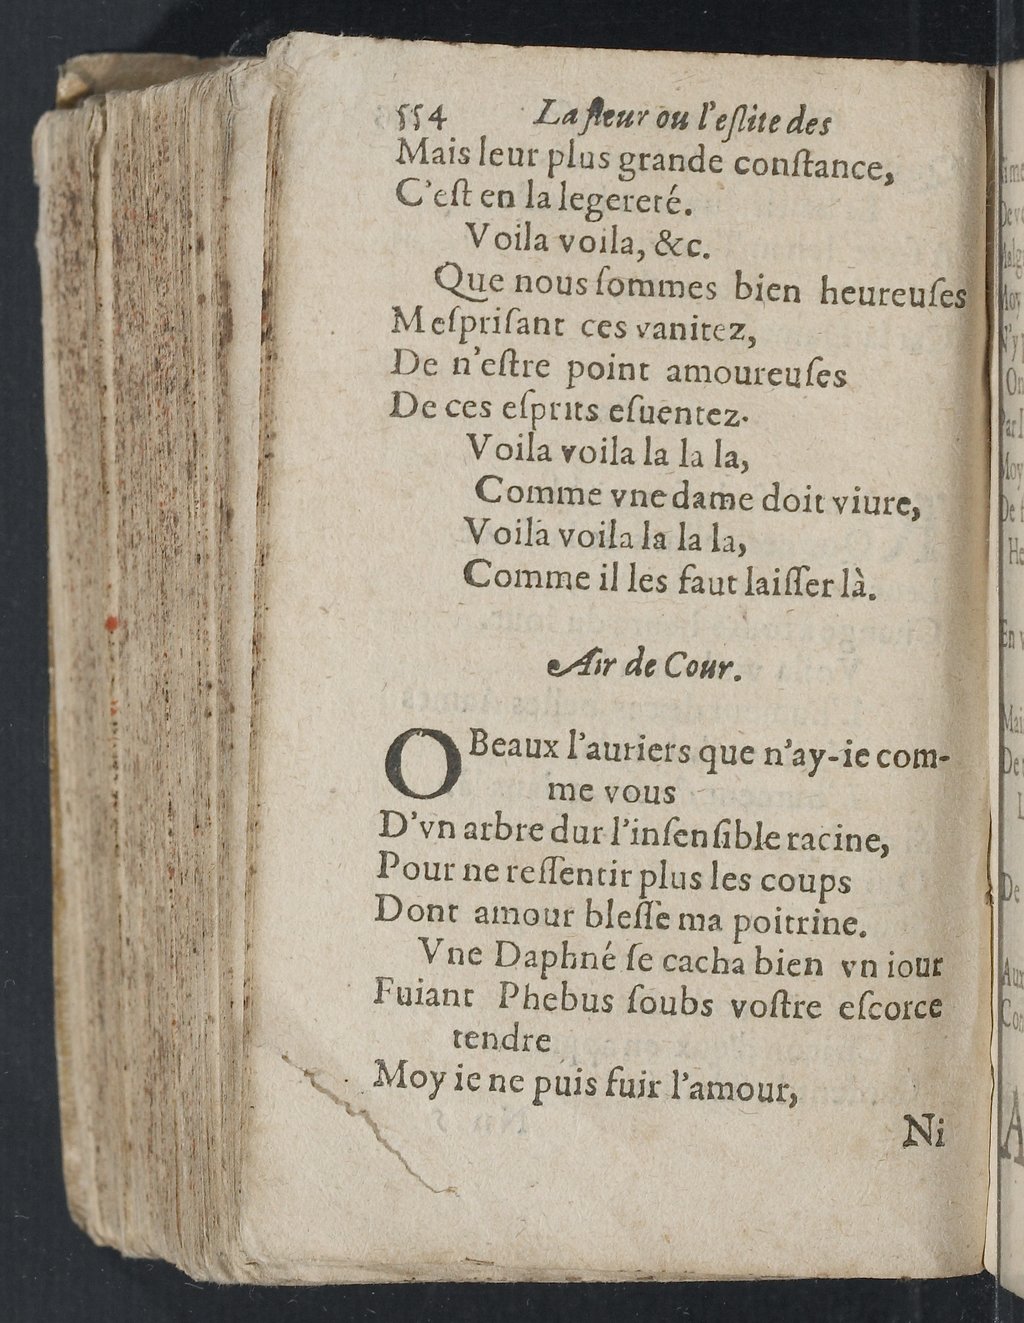 554 La fleur ou l'eslite des
Mais leur plus grande conſtance,
C'eſt en la legereté.
Voila voila, &c.
Que nous ſommes bien heureuſes
Meſpriſant ces vanitez,
De n'eſtre point amoureuſes
De ces eſprits eſuentez.
Voila voila la la la,
Comme vne dame doit viure,
Voila voila la la la,
Comme il les faut laiſſer là.
Air de Cour.
O Beaux l'auriers que n'ay-ie com-
me vous
D'vn arbre dur l'inſenſible racine,
Pour ne reſſentir plus les coups
Dont amour bleſſe ma poitrine.
Vne Daphné ſe cacha bien vn iour
Fuiant Phebus ſoubs voſtre eſcorce
tendre
Moy ie ne puis fuir l'amour,
Ni